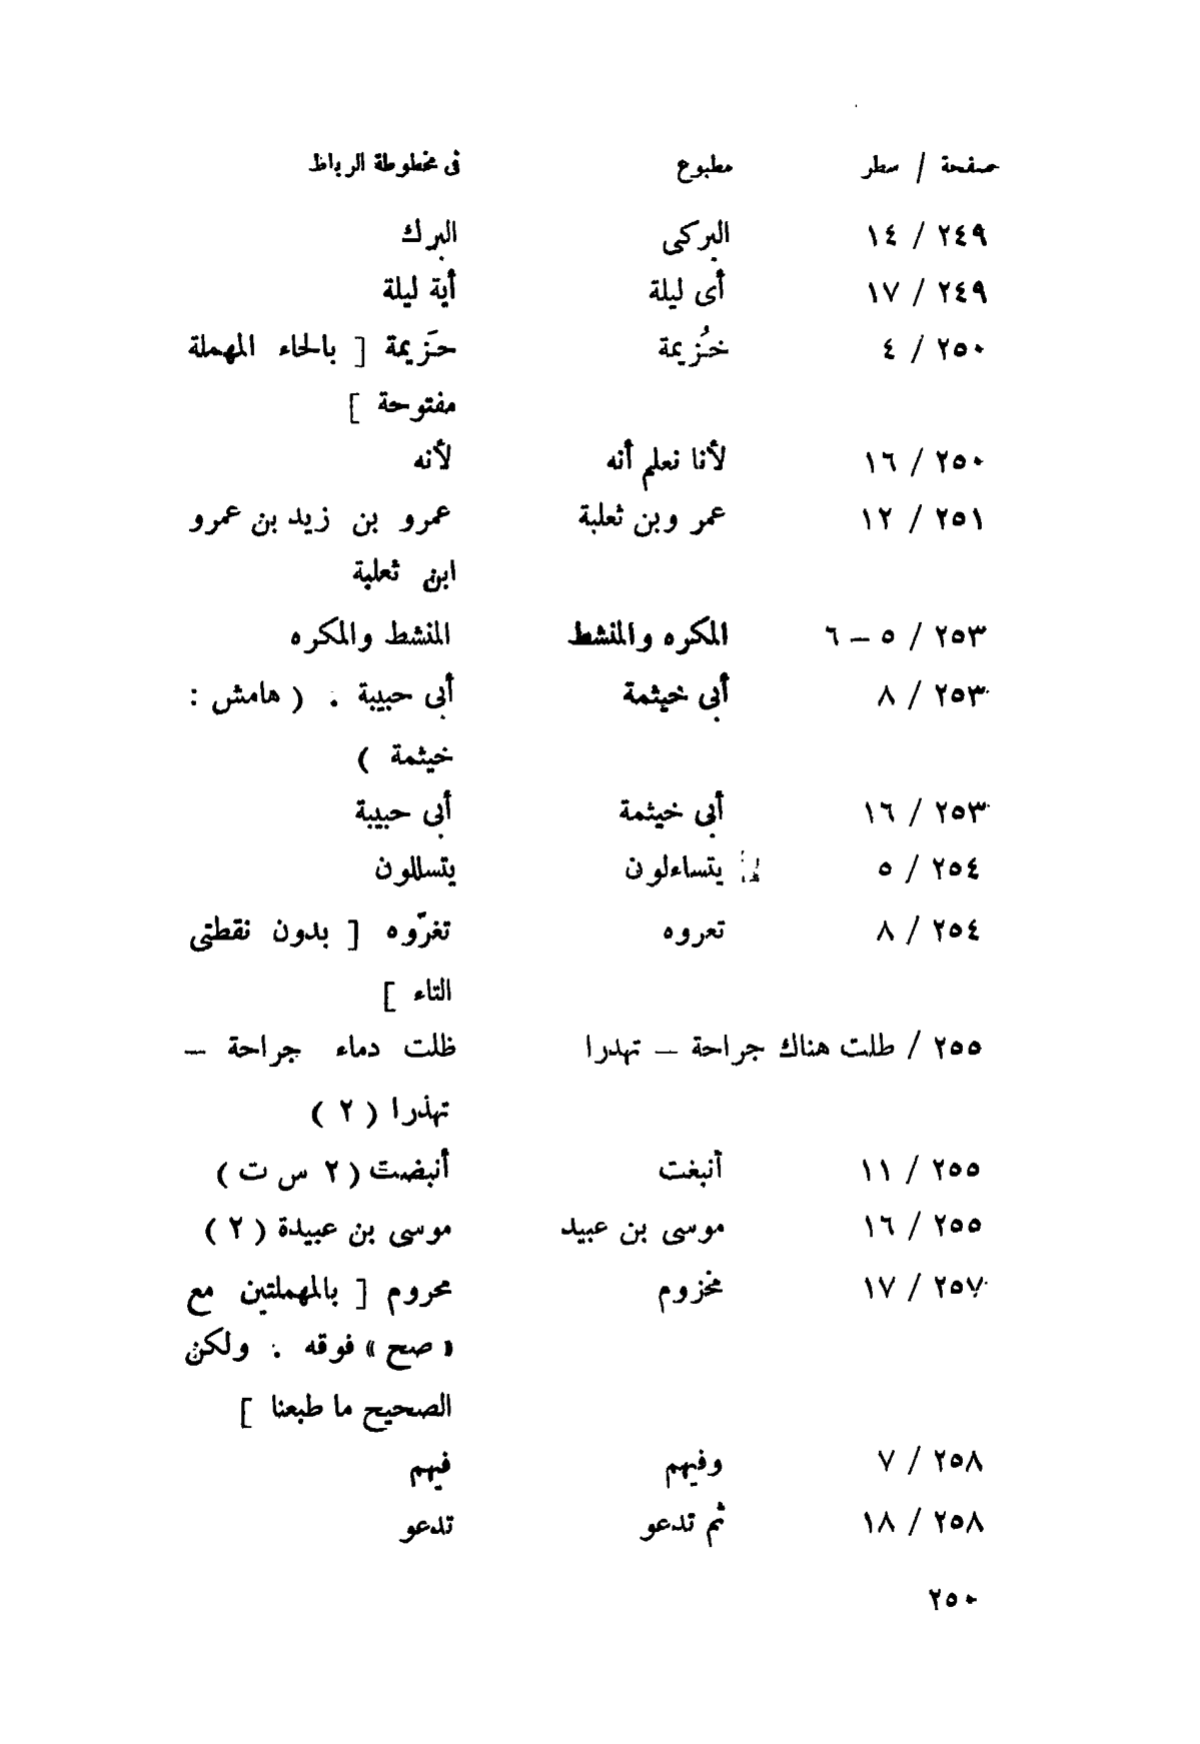 صفحة / سطر مطبوع فى مخطوطة الرباط
٢٤٩ / ١٤ البركى البرك
٢٤٩ / ١٧ أى ليلة أية ليلة
٢٥٠ / ٤ خُزيمة حَزيمة [ بالحاء المهملة
مفتوحة ]
٢٥٠ / ١٦ لأنا نعلم أنه لأنه
٢٥١ / ١٢ عمر وبن ثعلبة عمرو بن زيد بن عمرو
ابن ثعلبة
٢٥٣ / ٥ – ٦ المكره والمنشط المنشط والمكره
٢٥٣ / ٨ أبى خيثمة أبى حبيبة . ( هامش :
خيثمة )
٢٥٣ / ١٦ أبى خيثمة أبى حبيبة
٢٥٤ / ٥ يتساءلون يتسللون
٢٥٤ / ٨ تعروه تغرّوه [ بدون نقطتى
التاء ]
٢٥٥ / طلت هناك جراحة – تهدرا ظلت دماء جراحة –
تهذرا ( ٢ )
٢٥٥ / ١١ أنبغت أنبضت ( ٢ س ت )
٢٥٥ / ١٦ موسى بن عبيد موسى بن عبيدة ( ٢ )
٢٥٧ / ١٧ مخزوم محروم [ بالمهملتين مع
« صح » فوقه . ولكن
الصحيح ما طبعنا ]
٢٥٨ / ٧ وفيهم فيهم
٢٥٨ / ١٨ ثم تدعو تدعو
٢٥٠